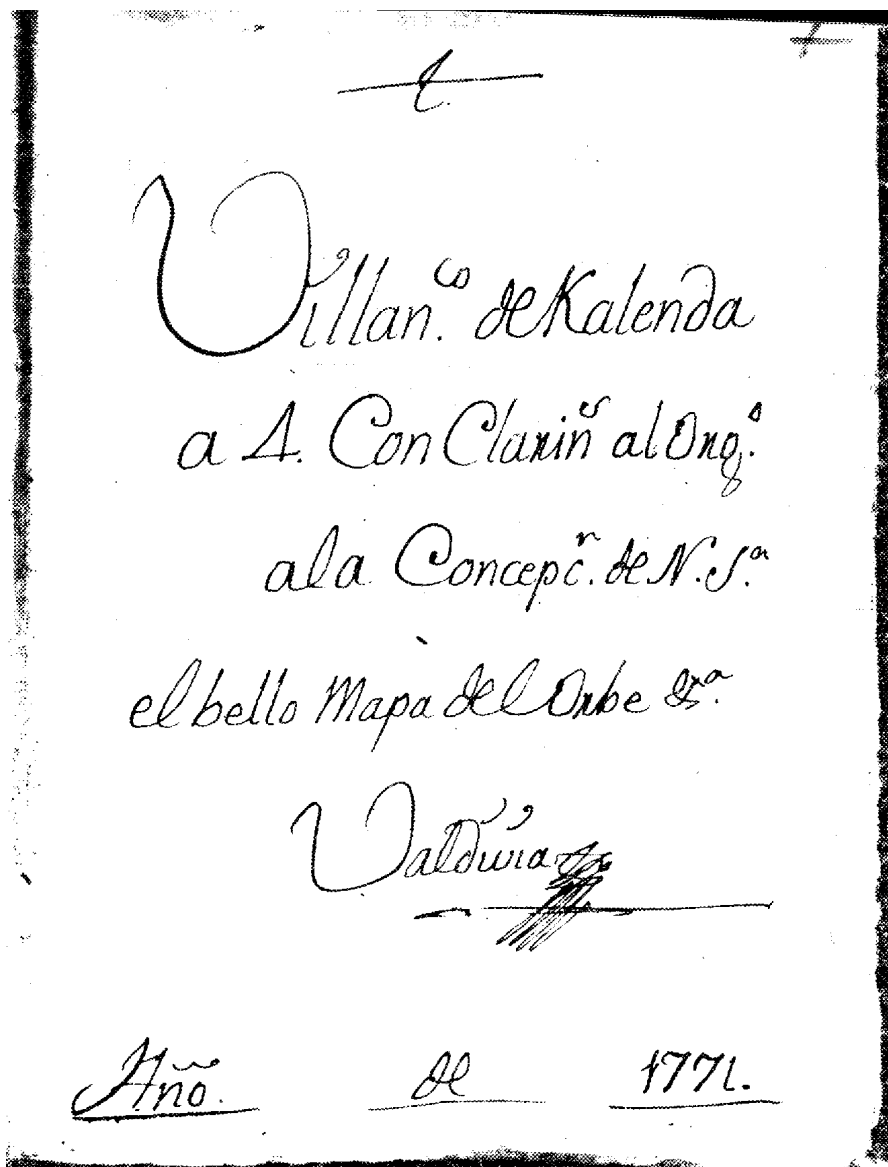 Villan.co de Kalenda
a 4. Con Clarin.s al Org.o
ala Concepc.n de N. S.a
el bello Mapa del Orbe &.a
Valdivia
Año. de 1771.